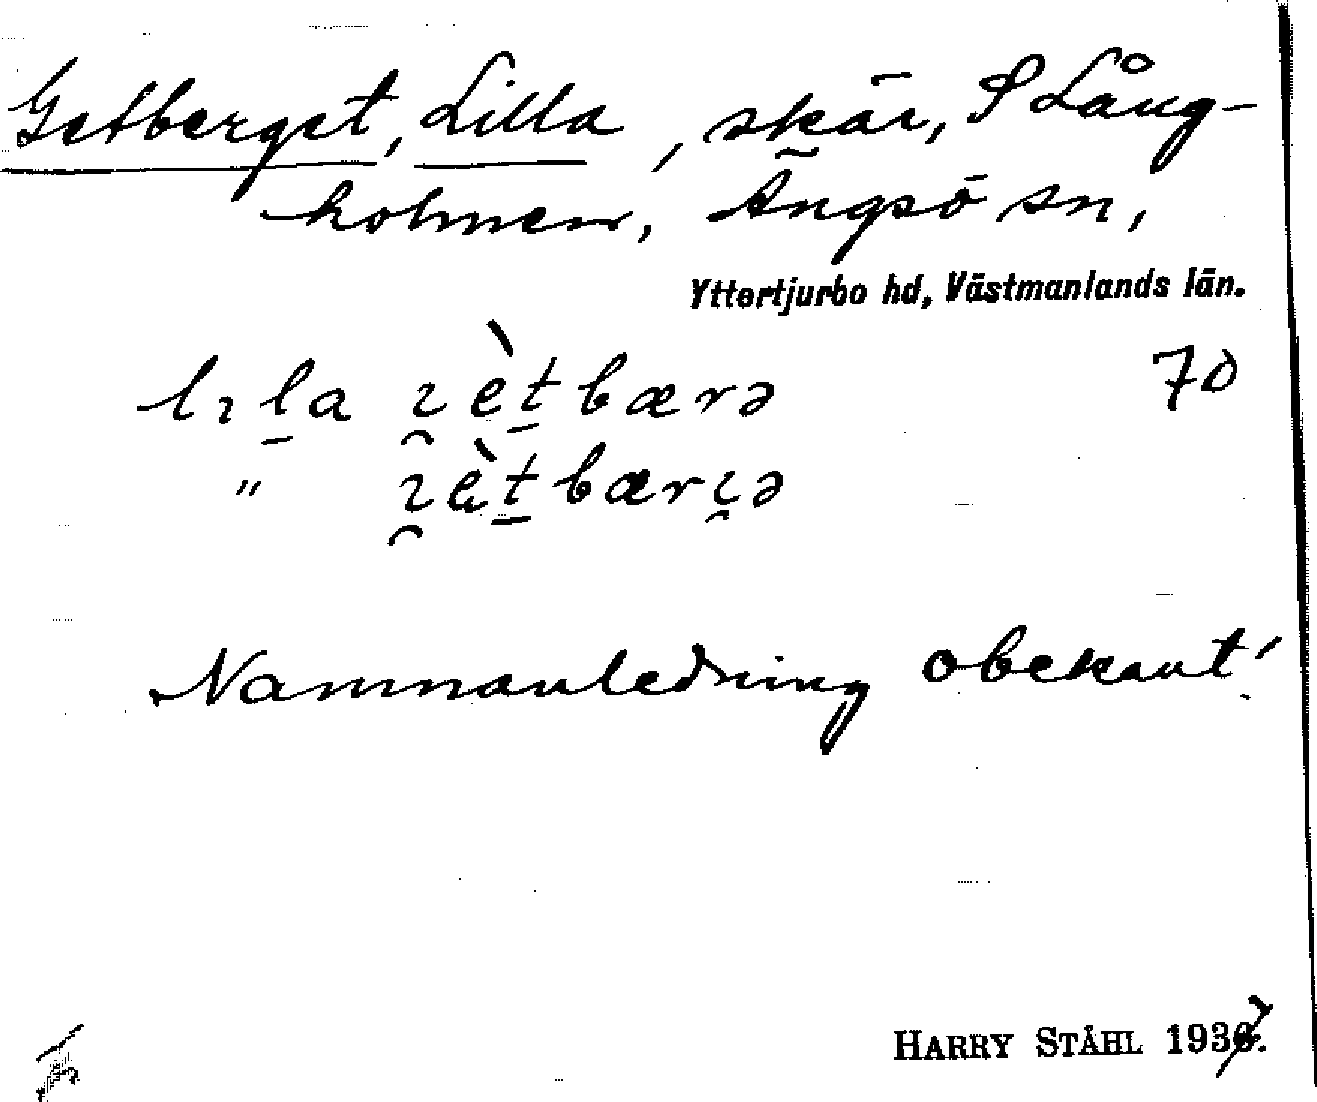 Getberget, Lilla, skär, S Lång-
holmen, Ängsö sn,
Yttertjurbo hd, Västmanlands län.
lıl̠a ı̯èt̠bærə 70
" ı̯èt̠bærı̯ə
Namnanledning obekant!
HARRY STÅHL 1937.